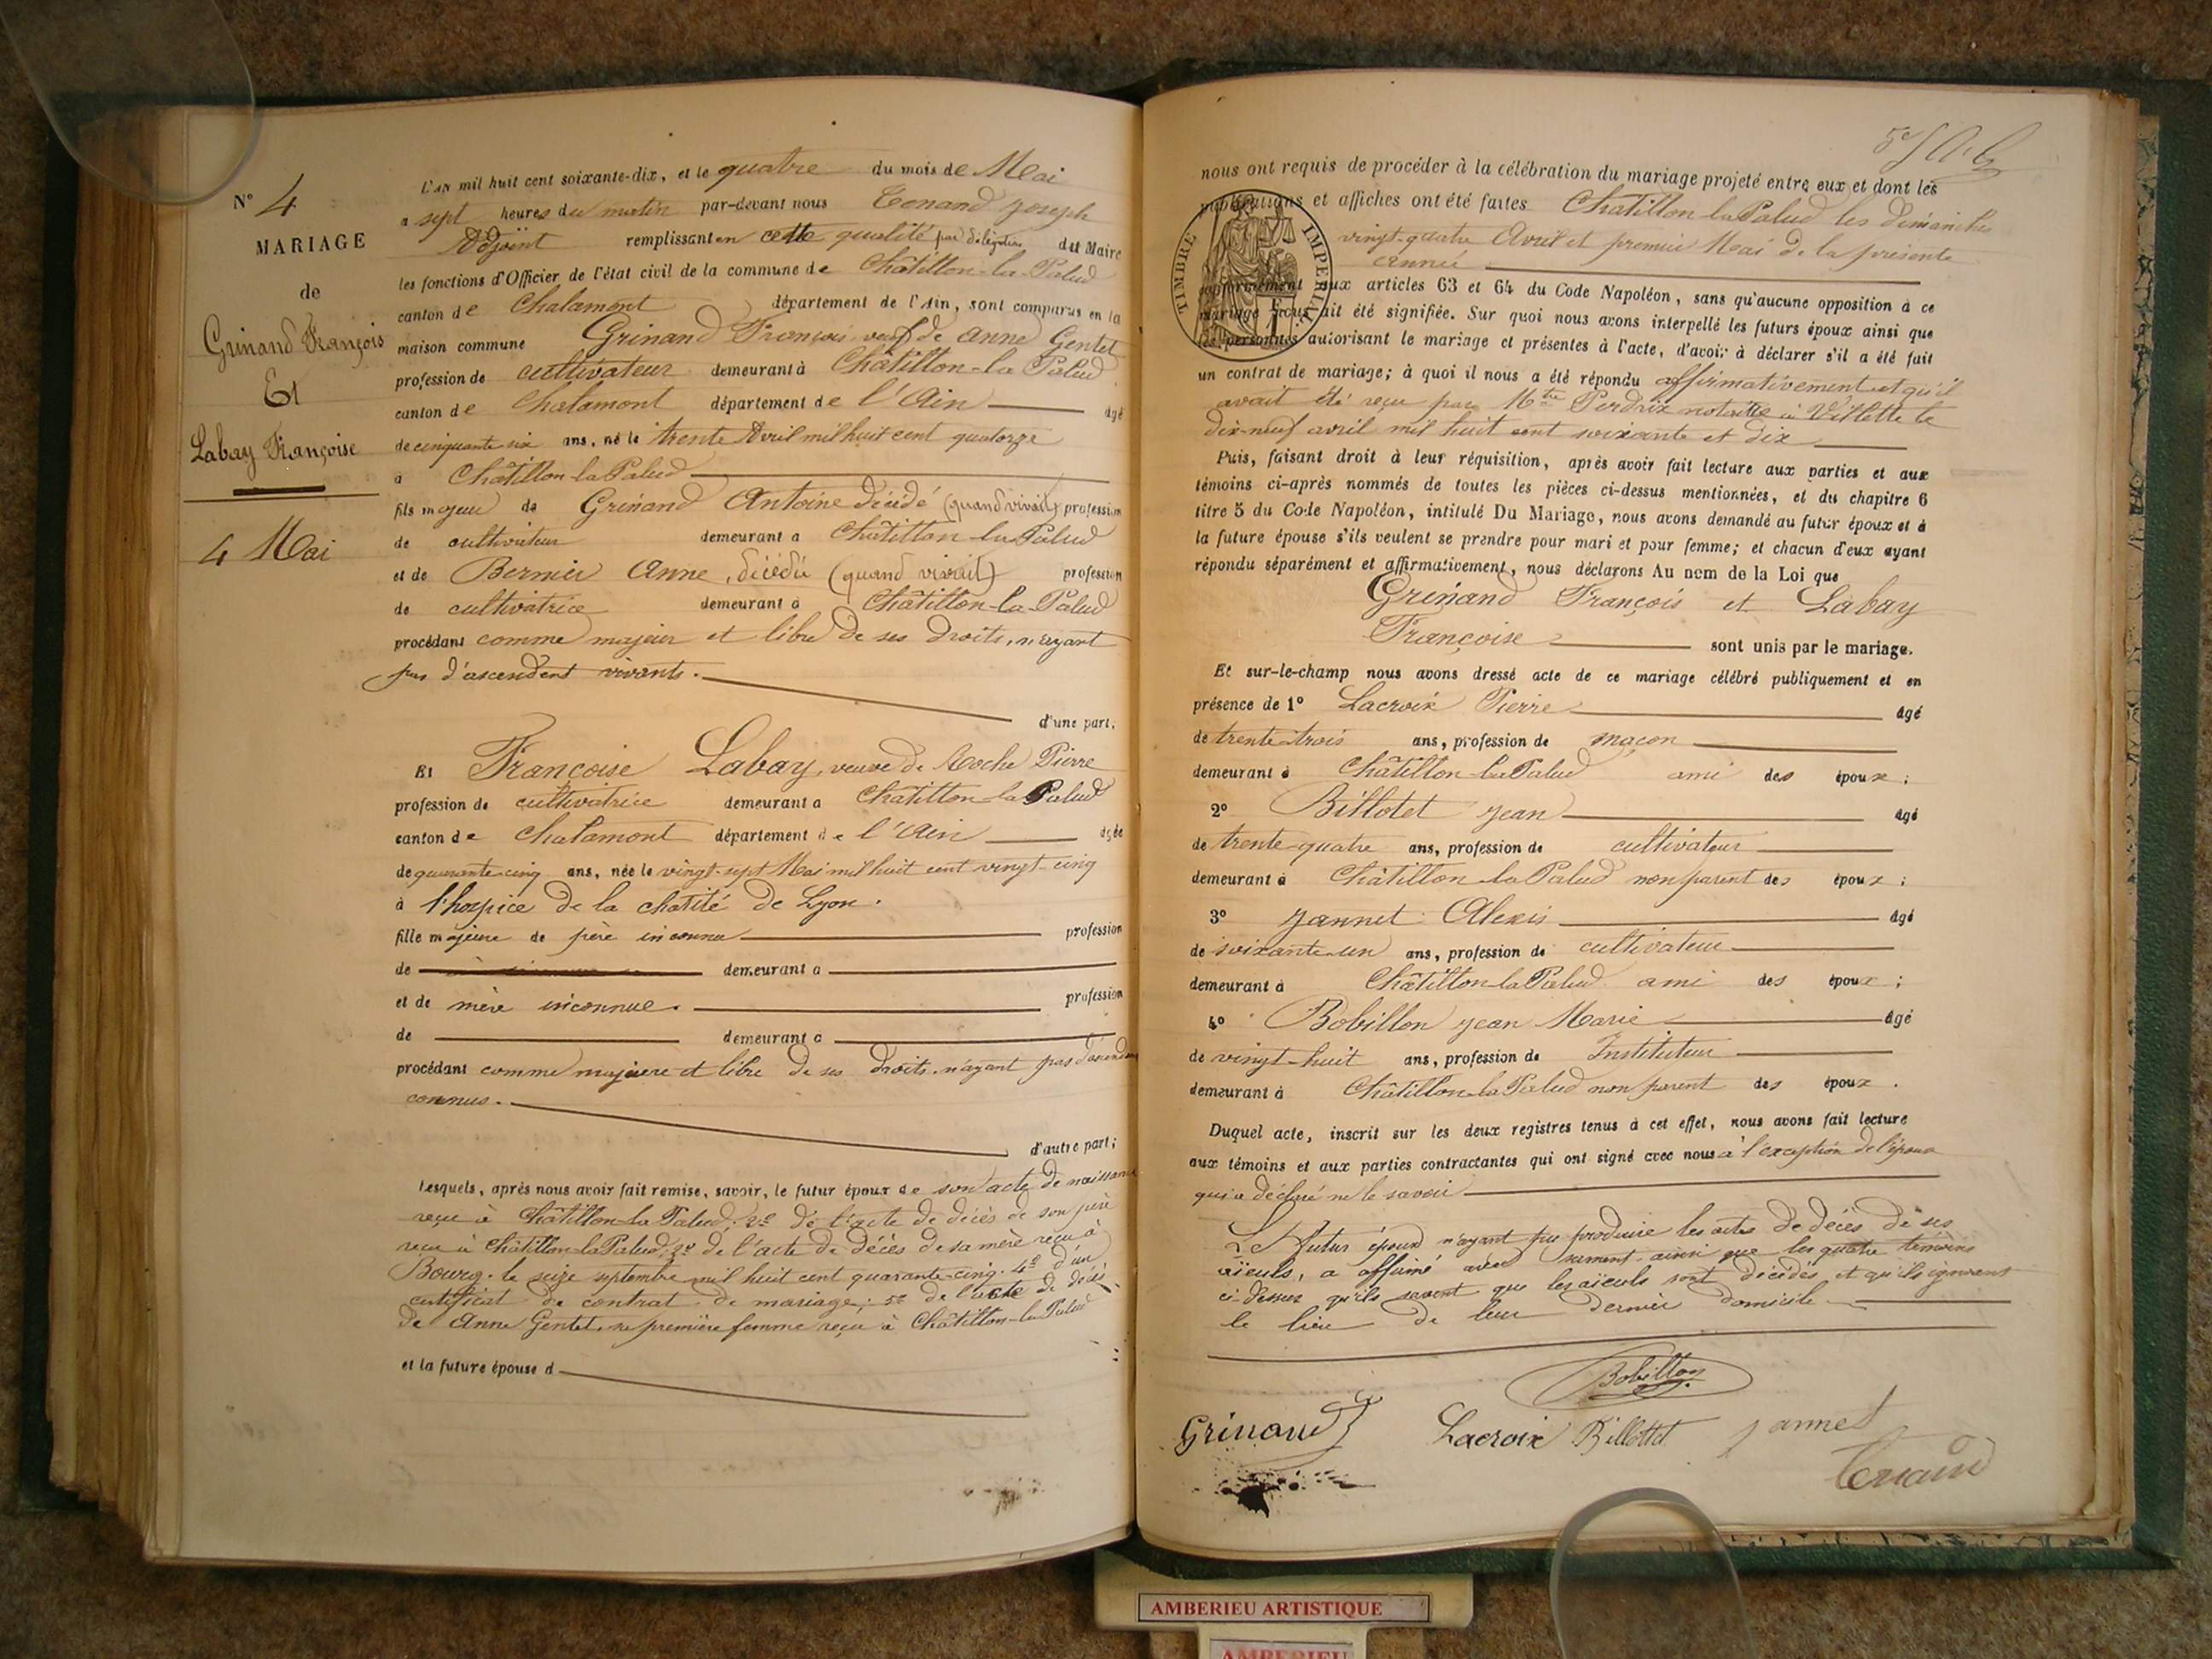 N° 4
MARIAGE
de
Grinand François
Et
Labay Françoise
4 Mai
L'AN mil huit cent soixante-dix, et le quatre du mois de Mai
a sept heures du matin par-devant nous Tenand Joseph
Adjoint remplissant en cette qualité par délégation du Maire
les fonctions d'Officier de l'état civil de la commune de Châtillon-la-Palud
canton de Chalamont département de l'Ain, sont comparus en la
maison commune Grinand François veuf de Anne Gentet
profession de cultivateur demeurant à Châtillon-la Palud
canton de Chalamont département de l'Ain âgé
de cinquante six ans, né le trente Avril mil huit cent quatorze
à Châtillon-la Palud
fils majeur de Grinand Antoine décédé (quand vivait) profession
de cultivateur demeurant a Châtillon-la Palud
et de Bernier Anne, décédée (quand vivait) profession
de cultivatrice demeurant à Châtillon-la-Palud
procédant comme majeur et libre de ses droits, n'ayant
pas d'ascendent vivants.
d'une part;
Et Françoise Labay, veuve de Roche Pierre
profession de cultivatrice demeurant a Châtillon-la Palud
canton de Chalamont département de l'Ain âgée
de quarante-cinq ans, née le vingt-sept Mai mil huit cent vingt-cinq
à l'hospice de la charité de Lyon.
fille majeure de père inconnu profession
de demeurant a
et de mère inconnue. profession
de demeurant a
procédant comme majeure et libre de ses droits n'ayant pas d'ascendans
connus.
d'autre part;
Lesquels, après nous avoir fait remise, savoir, le futur époux de son acte de naissance
reçu à Châtillon-la Palud; 2° de l'acte de décès de son père
reçu à Châtillon-la Palud; 3° de l'acte de décès de sa mère reçu à
Bourg. le seize septembre mil huit cent quarante-cinq. 4° d'un
certificat de contrat de mariage; 5° de l'acte de décès
de Anne Gentet, sa première femme reçu à Châtillon-la Palud
et la future épouse d
nous ont requis de procéder à la célébration du mariage projeté entre eux et dont les
publications et affiches ont été faites Châtillon-la Palud les dimanches
vingt-quatre Avril et premier Mai de la présente
année
TIMBRE IMPERIAL
conformément aux articles 63 et 64 du Code Napoléon, sans qu'aucune opposition à ce
mariage nous ait été signifiée. Sur quoi nous avons interpellé les futurs époux ainsi que
les personnes autorisant le mariage et présentes à l'acte, d'avoir à déclarer s'il a été fait
un contrat de mariage; à quoi il nous a été répondu affirmativement et qu'il
avait été reçu par Mtre Perdrix notaire à Villette le
dix-neuf avril mil huit cent soixante et dix
Puis, faisant droit à leur réquisition, après avoir fait lecture aux parties et aux
témoins ci-après nommés de toutes les pièces ci-dessus mentionnées, et du chapitre 6
titre 5 du Code Napoléon, intitulé Du Mariage, nous avons demandé au futur époux et à
la future épouse s'ils veulent se prendre pour mari et pour femme; et chacun d'eux ayant
répondu séparément et affirmativement, nous déclarons Au nom de la Loi que
Grinand François et Labay
Françoise sont unis par le mariage.
Et sur-le-champ nous avons dressé acte de ce mariage célébré publiquement et en
présence de 1° Lacroix Pierre âgé
de trente-trois ans, profession de maçon
demeurant à Châtillon-la Palud ami des époux;
2° Billotet Jean âgé
de trente-quatre ans, profession de cultivateur
demeurant à Châtillon-la Palud non parent des époux;
3° Jannet Alexis âgé
de soixante-un ans, profession de cultivateur
demeurant à Châtillon-la Palud ami des époux;
4° Bobillon Jean Marie âgé
de vingt-huit ans, profession de Instituteur
demeurant à Châtillon-la Palud non parent des époux.
Duquel acte, inscrit sur les deux registres tenus à cet effet, nous avons fait lecture
aux témoins et aux parties contractantes qui ont signé avec nous à l'exception de l'épouse
qui a déclaré ne le savoir
Le futur époux n'ayant pu produire les actes de décès de ses
aïeuls, a affirmé avec serment ainsi que les quatre témoins
ci-dessus qu'ils savent que les aïeuls sont décédés et qu'ils ignorent
le lieu de leur dernier domicile
Bobillon
Grinand Lacroix Billottet Jannet
Tenand
AMBERIEU ARTISTIQUE
AMBERIEU